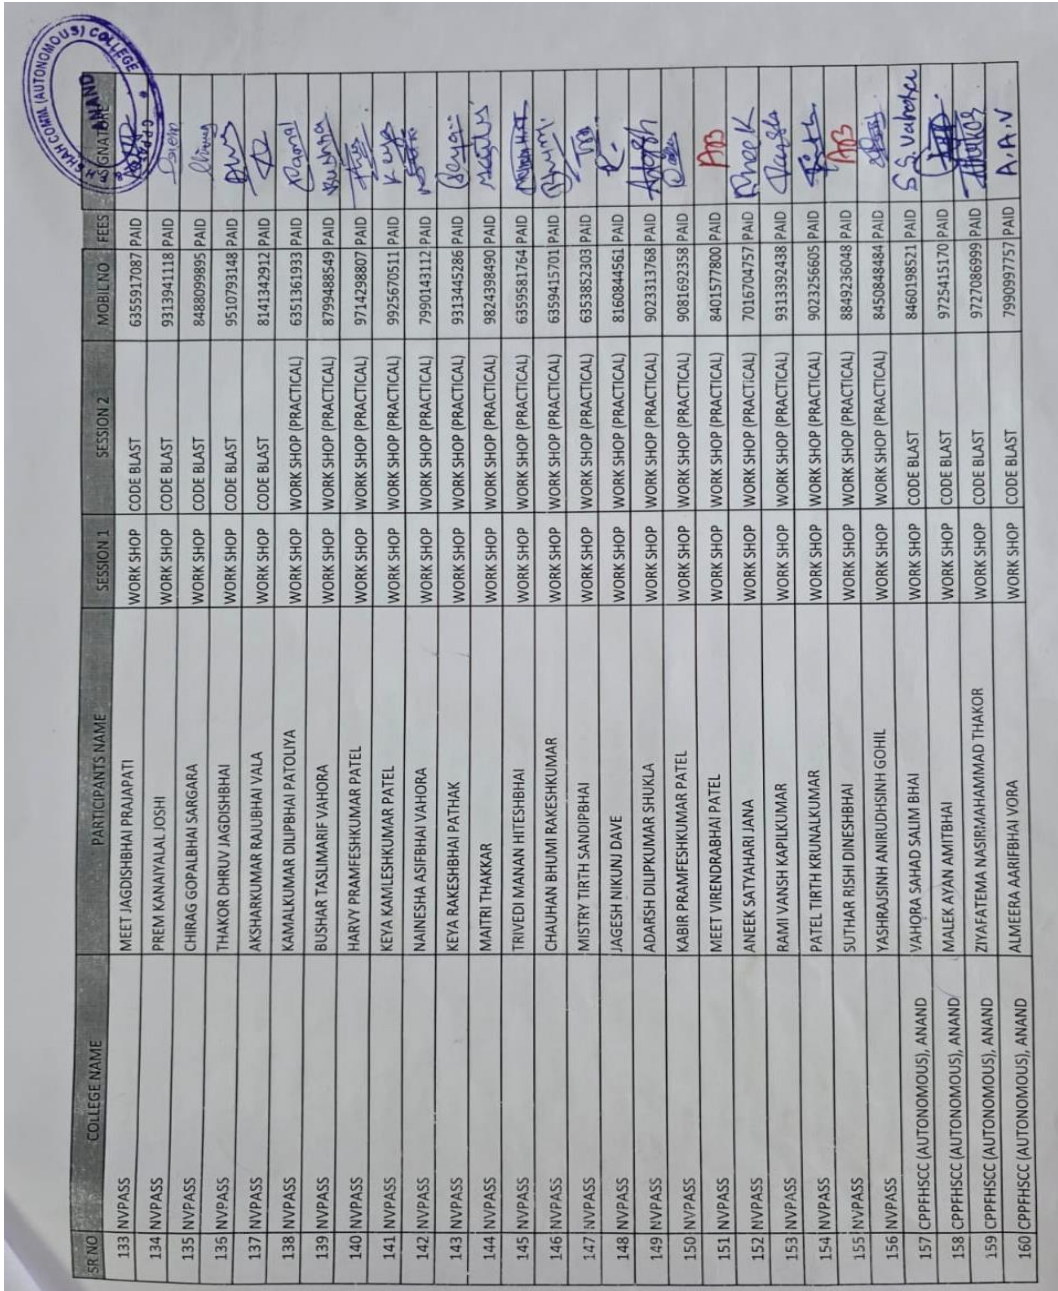 SR NO COLLEGE NAME PARTICIPANTS NAME SESSION 1 SESSION 2 MOBIL NO FEES SIGNATURE
133 NVPASS MEET JAGDISHBHAI PRAJAPATI WORK SHOP CODE BLAST 6355917087 PAID
134 NVPASS PREM KANAIYALAL JOSHI WORK SHOP CODE BLAST 9313941118 PAID
135 NVPASS CHIRAG GOPALBHAI SARGARA WORK SHOP CODE BLAST 8488099895 PAID
136 NVPASS THAKOR DHRUV JAGDISHBHAI WORK SHOP CODE BLAST 9510793148 PAID
137 NVPASS AKSHARKUMAR RAJUBHAI VALA WORK SHOP CODE BLAST 8141342912 PAID
138 NVPASS KAMALKUMAR DILIPBHAI PATOLIYA WORK SHOP WORK SHOP (PRACTICAL) 6351361933 PAID
139 NVPASS BUSHAR TASLIMARIF VAHORA WORK SHOP WORK SHOP (PRACTICAL) 8799488549 PAID
140 NVPASS HARVY PRAMFESHKUMAR PATEL WORK SHOP WORK SHOP (PRACTICAL) 9714298807 PAID
141 NVPASS KEYA KAMLESHKUMAR PATEL WORK SHOP WORK SHOP (PRACTICAL) 9925670511 PAID Keya
142 NVPASS NAINESHA ASIFBHAI VAHORA WORK SHOP WORK SHOP (PRACTICAL) 7990143112 PAID
143 NVPASS KEYA RAKESHBHAI PATHAK WORK SHOP WORK SHOP (PRACTICAL) 9313445286 PAID
144 NVPASS MAITRI THAKKAR WORK SHOP WORK SHOP (PRACTICAL) 9824398490 PAID
145 NVPASS TRIVEDI MANAN HITESHBHAI WORK SHOP WORK SHOP (PRACTICAL) 6359581764 PAID
146 NVPASS CHAUHAN BHUMI RAKESHKUMAR WORK SHOP WORK SHOP (PRACTICAL) 6359415701 PAID Bhumi
147 NVPASS MISTRY TIRTH SANDIPBHAI WORK SHOP WORK SHOP (PRACTICAL) 6353852303 PAID
148 NVPASS JAGESH NIKUNJ DAVE WORK SHOP WORK SHOP (PRACTICAL) 8160844561 PAID
149 NVPASS ADARSH DILIPKUMAR SHUKLA WORK SHOP WORK SHOP (PRACTICAL) 9023313768 PAID
150 NVPASS KABIR PRAMFESHKUMAR PATEL WORK SHOP WORK SHOP (PRACTICAL) 9081692358 PAID
151 NVPASS MEET VIRENDRABHAI PATEL WORK SHOP WORK SHOP (PRACTICAL) 8401577800 PAID AB
152 NVPASS ANEEK SATYAHARI JANA WORK SHOP WORK SHOP (PRACTICAL) 7016704757 PAID
153 NVPASS RAMI VANSH KAPILKUMAR WORK SHOP WORK SHOP (PRACTICAL) 9313392438 PAID
154 NVPASS PATEL TIRTH KRUNALKUMAR WORK SHOP WORK SHOP (PRACTICAL) 9023256605 PAID
155 NVPASS SUTHAR RISHI DINESHBHAI WORK SHOP WORK SHOP (PRACTICAL) 8849236048 PAID AB
156 NVPASS YASHRAJSINH ANIRUDHSINH GOHIL WORK SHOP WORK SHOP (PRACTICAL) 8450848484 PAID
157 CPPFHSCC (AUTONOMOUS), ANAND VAHORA SAHAD SALIM BHAI WORK SHOP CODE BLAST 8460198521 PAID S.S.Vahora
158 CPPFHSCC (AUTONOMOUS), ANAND MALEK AYAN AMITBHAI WORK SHOP CODE BLAST 9725415170 PAID
159 CPPFHSCC (AUTONOMOUS), ANAND ZIYAFATEMA NASIRMAHAMMAD THAKOR WORK SHOP CODE BLAST 9727086999 PAID
160 CPPFHSCC (AUTONOMOUS), ANAND ALMEERA AARIFBHAI VORA WORK SHOP CODE BLAST 7990997757 PAID A.A.V
SHAH COMM. (AUTONOMOUS) COLLEGE
ANAND